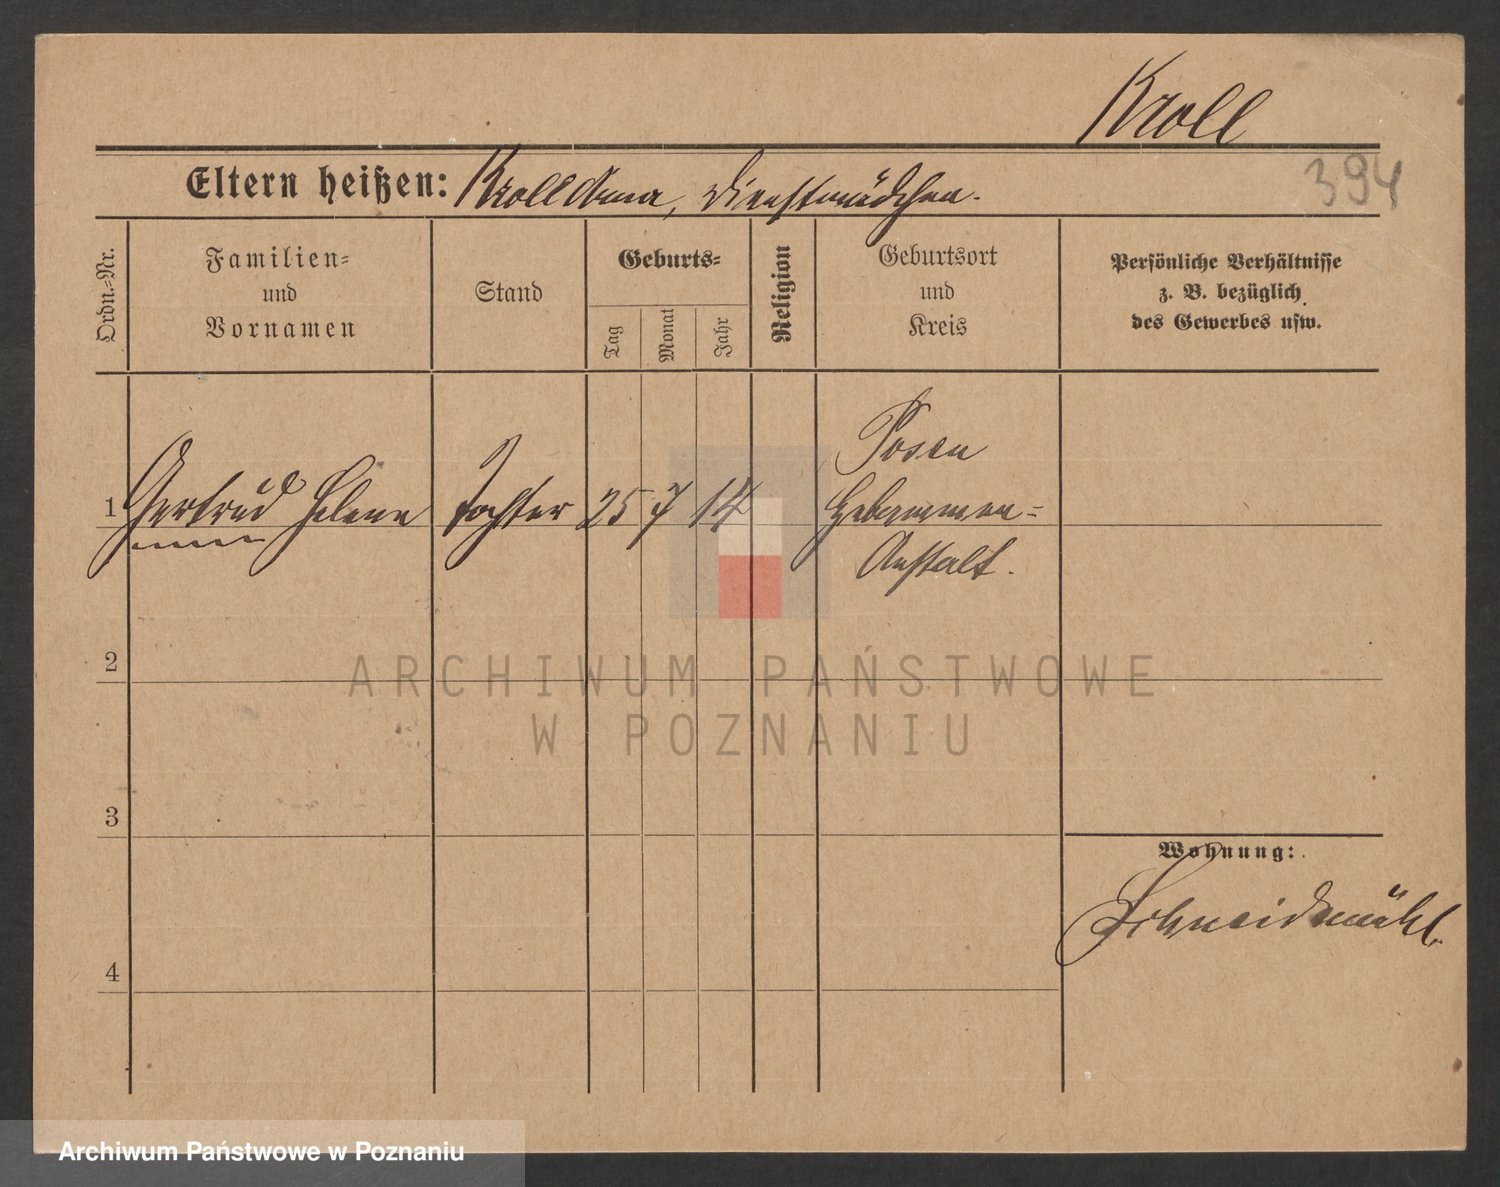 Kroll
394
Eltern heißen: Kroll Anna, Dienstmädchen.
Ordn.=Nr.
Familien=
und
Vornamen
Stand
Geburts=
Tag
Monat
Jahr
Religion
Geburtsort
und
Kreis
Persönliche Verhältnisse
z. B. bezüglich
des Gewerbes usw.
1 Gertrud Helene Tochter 25 7 14 Posen
Hebammen=
Anstalt.
2
ARCHIWUM PAŃSTWOWE
W POZNANIU
3
Wohnung:
Schneidemühl.
4
Archiwum Państwowe w Poznaniu